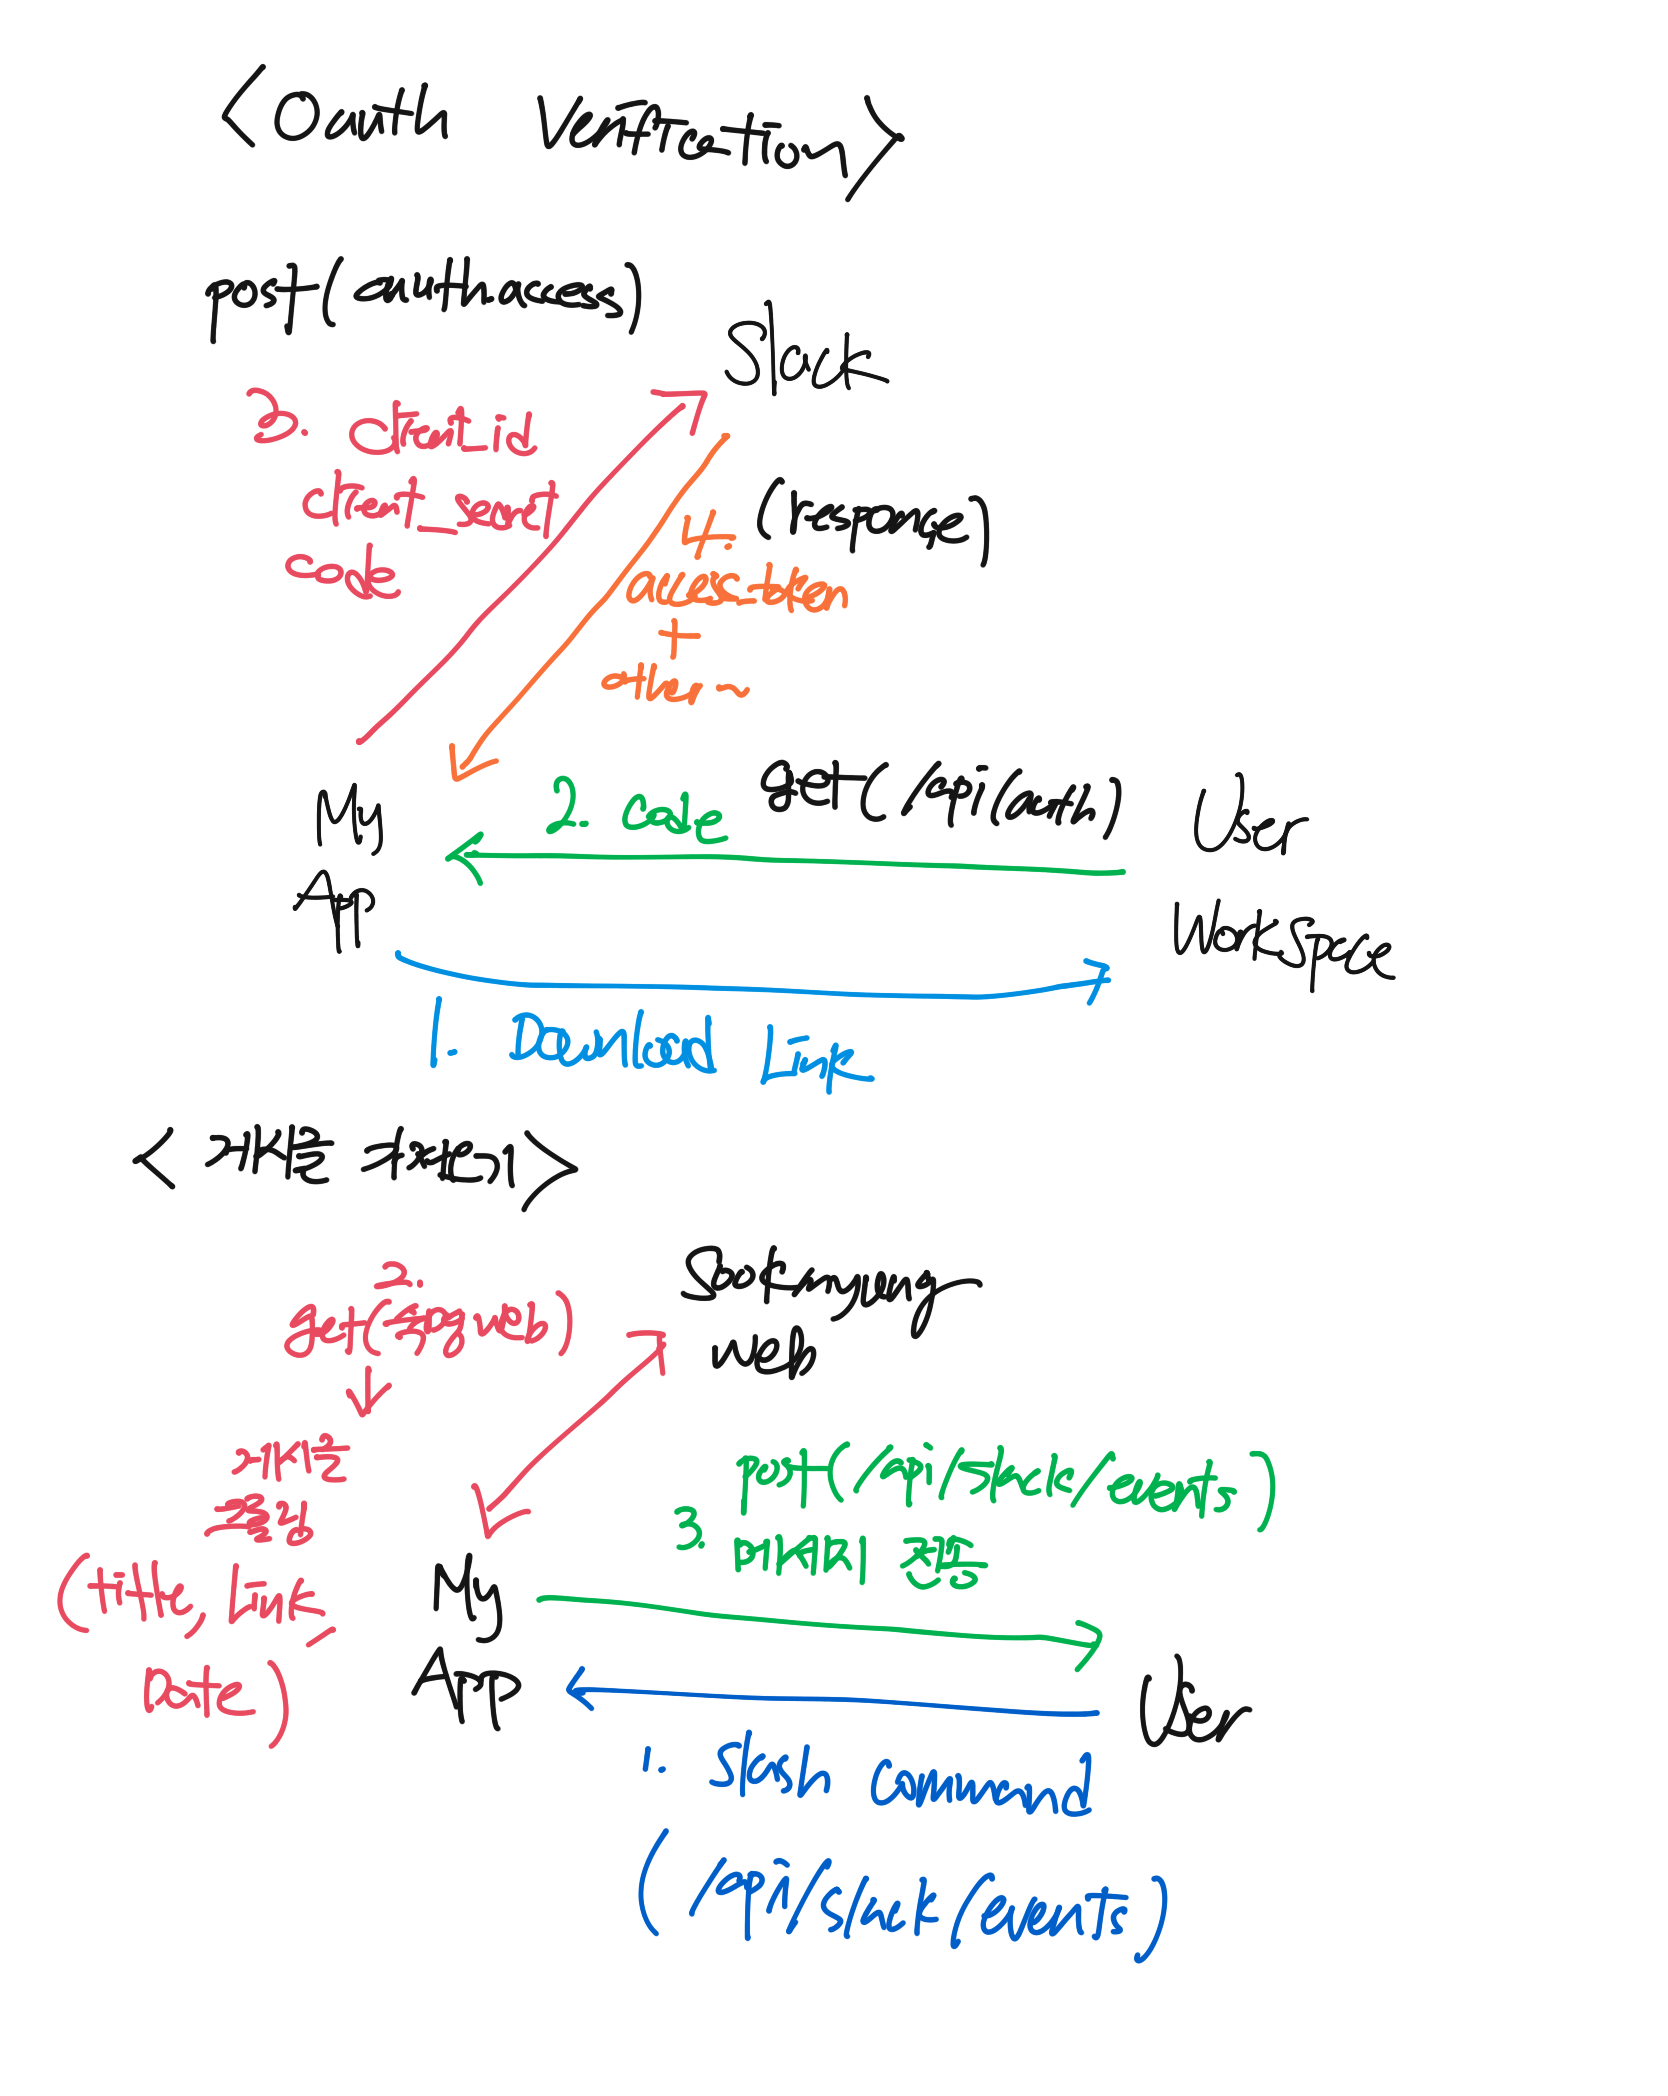 <Oauth Verification>
post(oauth.access)
Slack
3. client_id
client_secret
code
4. (response)
access_token
+
other~
My
App
2. code
get(/api/auth)
User
WorkSpace
1. Download Link
<게시물 가져온기>
Sookmyung
web
2.
get(숙명 web)
게시물
크롤링
(title, Link,
Date)
post(/api/slack/events)
3. 메세지 전송
My
App
User
1. Slash command
(/api/slack/events)